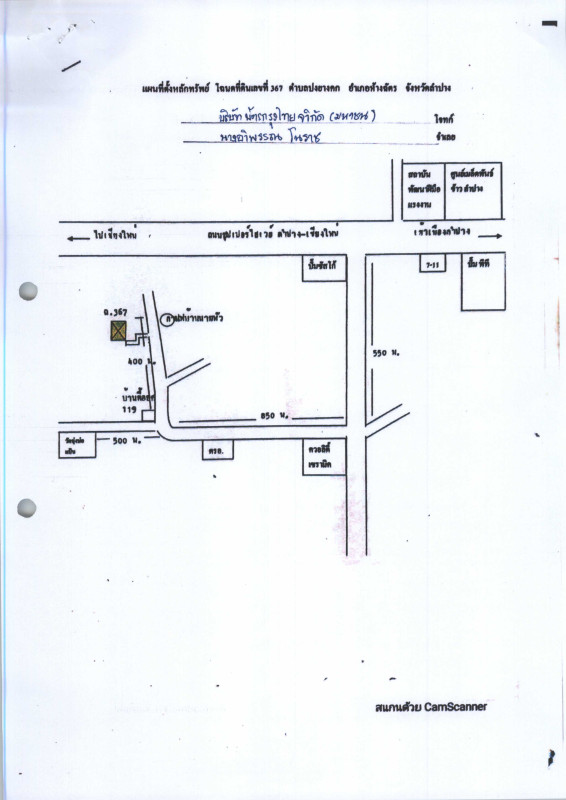 แผนที่ตั้งหลักทรัพย์ โฉนดที่ดินเลขที่ 367 ตำบลปงยางคก อำเภอห้างฉัตร จังหวัดลำปาง
บริษัท บัตรกรุงไทย จำกัด (มหาชน) โจทก์
นางอำพรรณ โนราช จำเลย
สถาบัน
พัฒนาฝีมือ
แรงงาน
ศูนย์เมล็ดพันธุ์
ข้าว ลำปาง
ไปเชียงใหม่
ถนนซุปเปอร์ไฮเวย์ ลำปาง-เชียงใหม่
เข้าเมืองลำปาง
ปั๊มซัสโก้
7-11
ปั๊ม พีที
ฉ.367
400 ม.
550 ม.
บ้านเลขที่
119
850 ม.
500 ม.
ควอลิตี้
เซรามิค
สแกนด้วย CamScanner